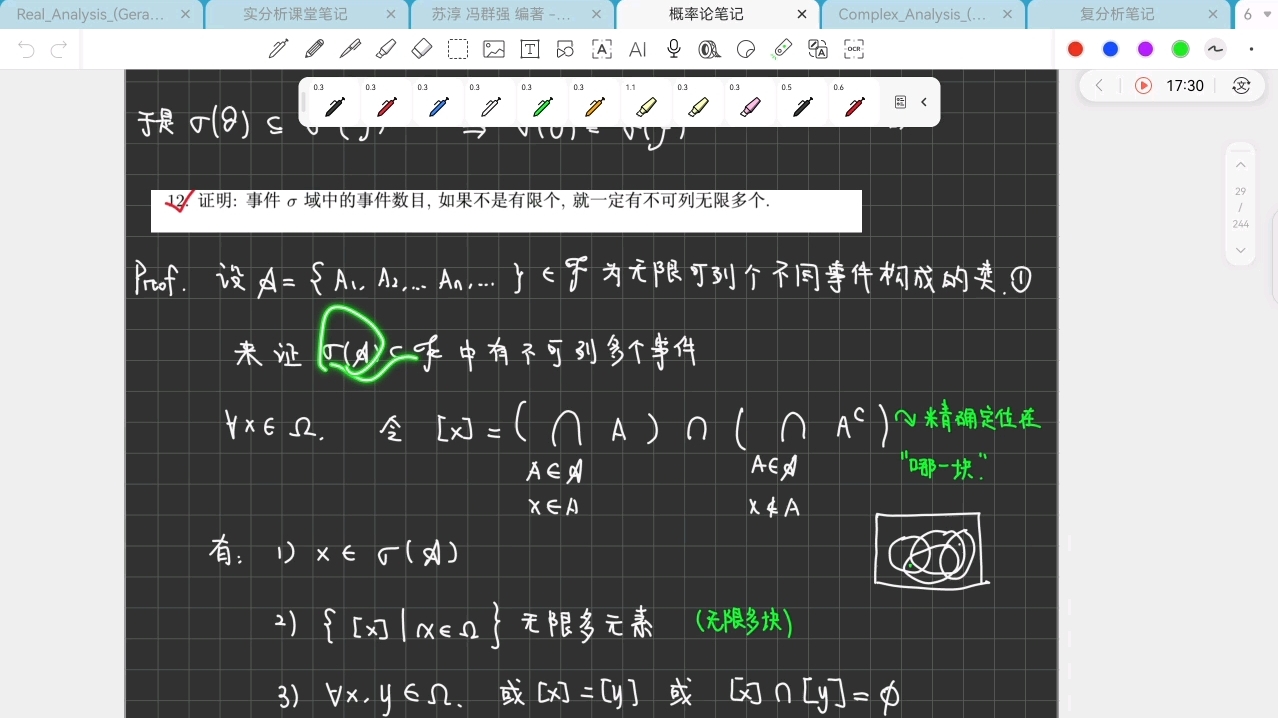 Real_Analysis_(Gera... ×
实分析课堂笔记 ×
苏淳 冯群强 编著 –... ×
概率论笔记 ×
Complex_Analysis_(... ×
复分析笔记 ×
6
T A AI A OCR
0.3 0.3 0.3 0.3 0.3 0.3 1.1 0.3 0.3 0.5 0.6
17:30
29
/
244
于是 σ(
12. 证明: 事件 σ 域中的事件数目, 如果不是有限个, 就一定有不可列无限多个.
Prof. 设 𝒜 = { A₁, A₂, … Aₙ, … } ∈ ℱ 为无限可列个不同事件构成的类.①
来证 σ(𝒜) ⊂ ℱ 中有不可列多个事件
∀x ∈ Ω. 令 [x] = ( ⋂ A ) ∩ ( ⋂ Aᶜ ) 精确定位在
A∈𝒜 A∈𝒜 "哪一块."
x∈A x∉A
有: 1) x ∈ σ(𝒜)
2) { [x] | x∈Ω } 无限多元素 (无限多块)
3) ∀x, y ∈ Ω. 或 [x] = [y] 或 [x] ∩ [y] = ϕ